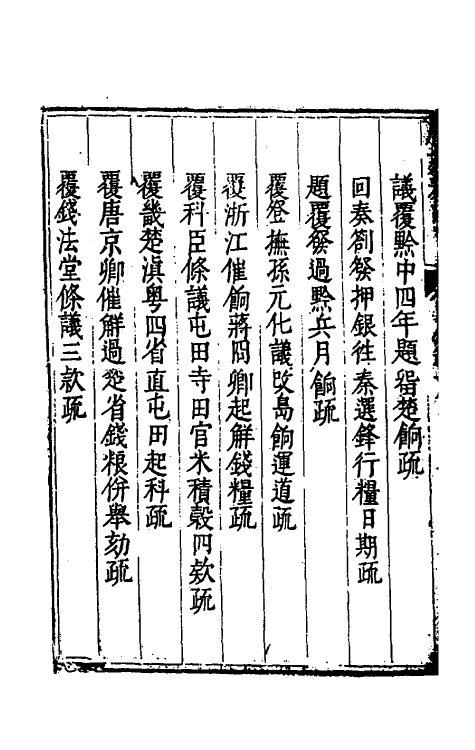 議覆黔中四年題留楚餉疏
回奏劄發押銀徃秦選鋒行糧日期疏
題覆發過黔兵月餉疏
覆登撫孫元化議改島餉運道疏
覆浙江催餉蔣冏卿起解錢糧疏
覆科臣條議屯田寺田官米積穀四欵疏
覆畿楚滇粤四省直屯田起科疏
覆唐京卿催解過楚省錢粮併舉劾疏
覆錢法堂條議三欵疏